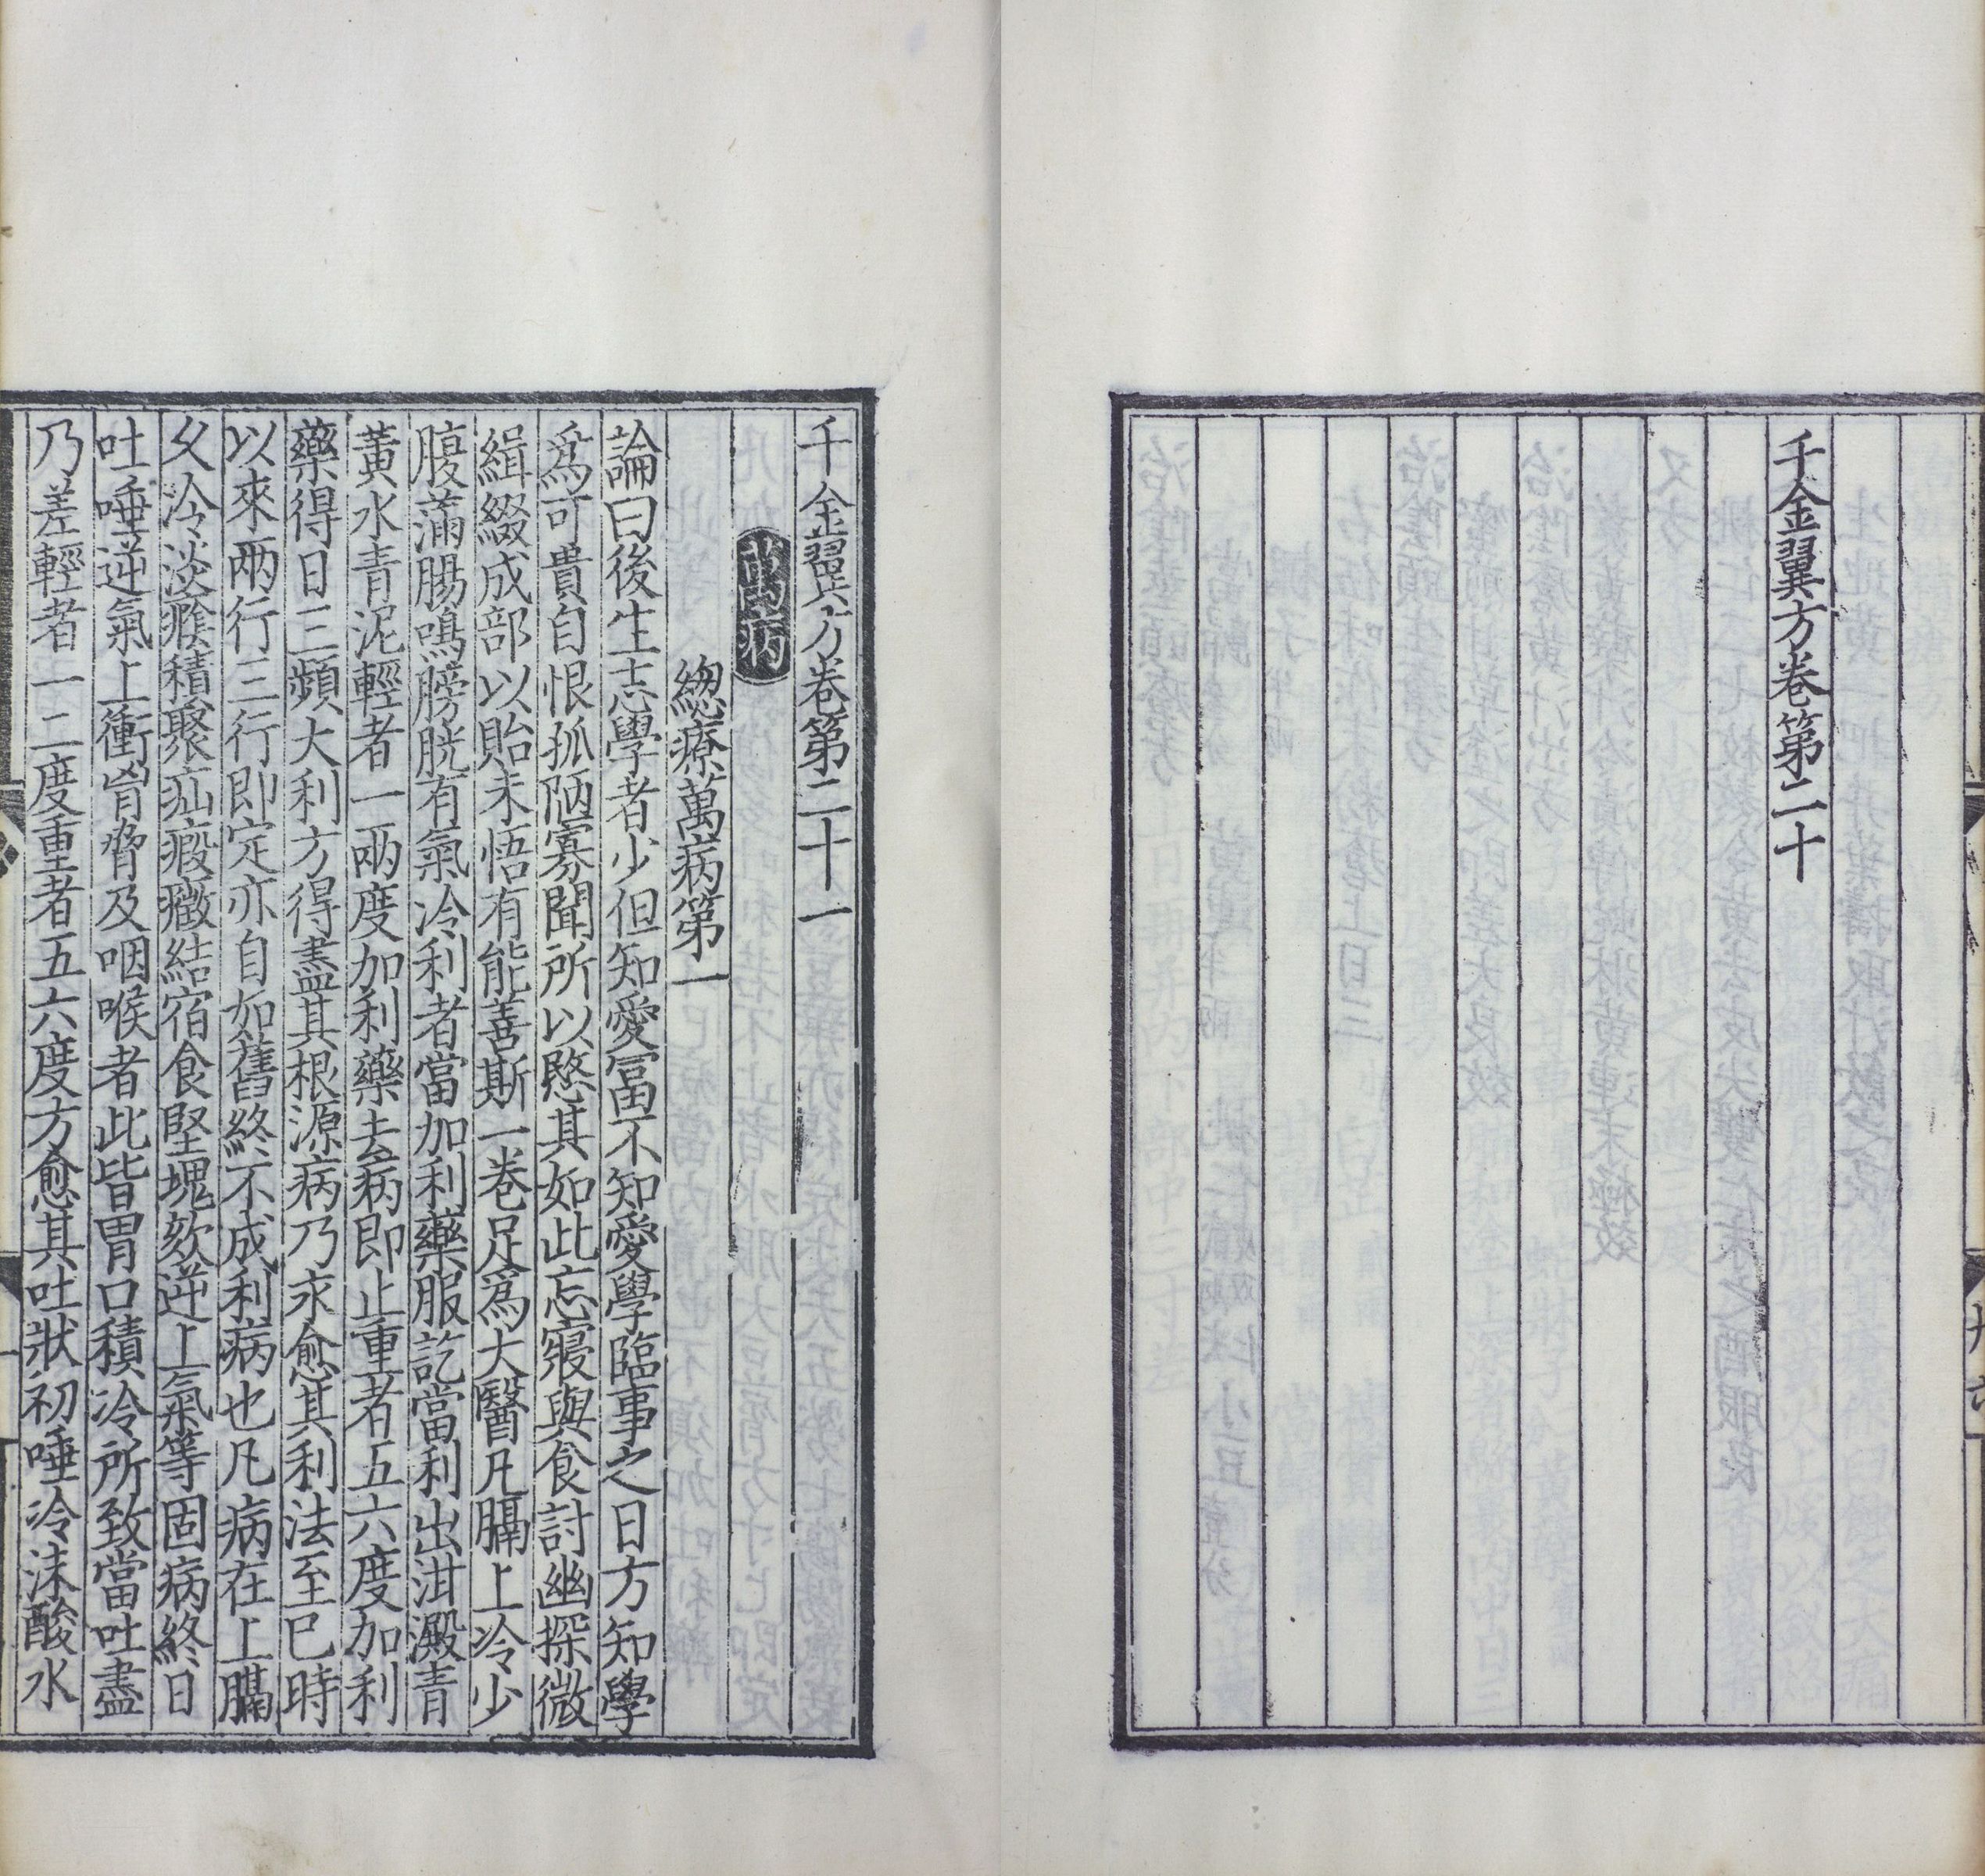 千金翼方卷第二十
千金翼方卷第二十一
萬病
總療萬病第一
論曰後生志學者少但知愛富不知愛學臨事之日方知學
爲可貴自恨孤陋寡聞所以愍其如此忘寢與食討幽探微
緝綴成部以貽未悟有能善斯一卷足爲大醫凡膈上冷少
腹滿腸鳴膀胱有氣冷利者當加利藥服訖當利出泔澱青
黃水青泥輕者一兩度加利藥去病即止重者五六度加利
藥得日三頻大利方得盡其根源病乃永愈其利法至巳時
以來兩行三行即定亦自如舊終不成利病也凡病在上膈
久冷淡癊積聚疝瘕癥結宿食堅塊欬逆上氣等固病終日
吐唾逆氣上衝胷脅及咽喉者此皆胃口積冷所致當吐盡
乃差輕者一二度重者五六度方愈其吐狀初唾冷沫酸水